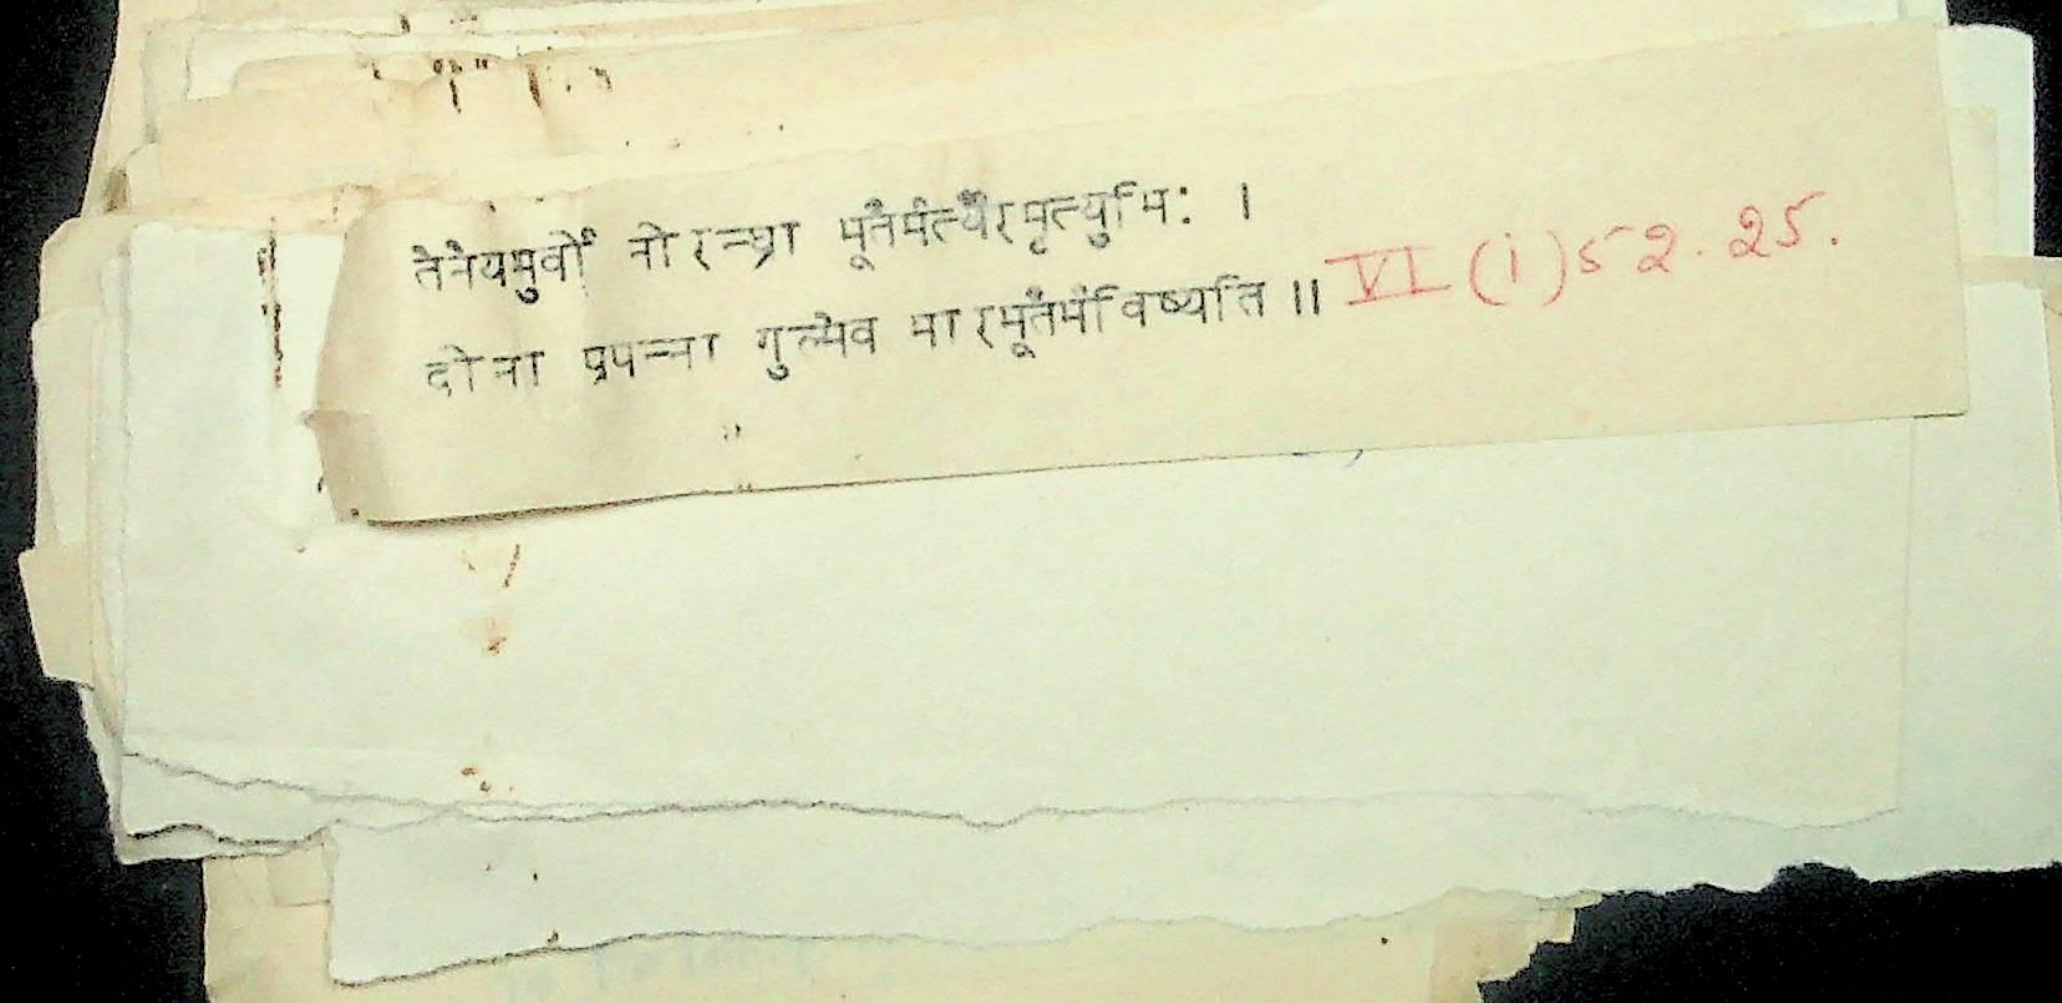 तेनेयमुर्वी नीरन्ध्रा भूतैर्मर्त्यैरमृत्युभिः ।
दीना प्रपन्ना गुल्मेव भारभूतैर्भविष्यति ॥ VI (i) 52.25.